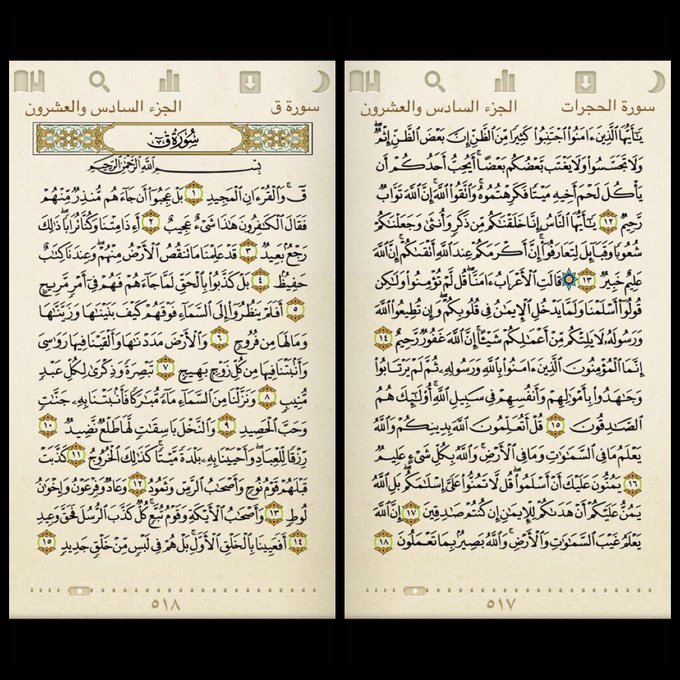 سورة الحجرات الجزء السادس والعشرون
يَٰٓأَيُّهَا ٱلَّذِينَ ءَامَنُوا۟ ٱجْتَنِبُوا۟ كَثِيرًا مِّنَ ٱلظَّنِّ إِنَّ بَعْضَ ٱلظَّنِّ إِثْمٌ ۖ
وَلَا تَجَسَّسُوا۟ وَلَا يَغْتَب بَّعْضُكُم بَعْضًا ۚ أَيُحِبُّ أَحَدُكُمْ أَن
يَأْكُلَ لَحْمَ أَخِيهِ مَيْتًا فَكَرِهْتُمُوهُ ۚ وَٱتَّقُوا۟ ٱللَّهَ ۚ إِنَّ ٱللَّهَ تَوَّابٌ
رَّحِيمٌ ١٢ يَٰٓأَيُّهَا ٱلنَّاسُ إِنَّا خَلَقْنَٰكُم مِّن ذَكَرٍ وَأُنثَىٰ وَجَعَلْنَٰكُمْ
شُعُوبًا وَقَبَآئِلَ لِتَعَارَفُوٓا۟ ۚ إِنَّ أَكْرَمَكُمْ عِندَ ٱللَّهِ أَتْقَىٰكُمْ ۚ إِنَّ ٱللَّهَ
عَلِيمٌ خَبِيرٌ ١٣ قَالَتِ ٱلْأَعْرَابُ ءَامَنَّا ۖ قُل لَّمْ تُؤْمِنُوا۟ وَلَٰكِن
قُولُوٓا۟ أَسْلَمْنَا وَلَمَّا يَدْخُلِ ٱلْإِيمَٰنُ فِى قُلُوبِكُمْ ۖ وَإِن تُطِيعُوا۟ ٱللَّهَ
وَرَسُولَهُۥ لَا يَلِتْكُم مِّنْ أَعْمَٰلِكُمْ شَيْـًٔا ۚ إِنَّ ٱللَّهَ غَفُورٌ رَّحِيمٌ ١٤
إِنَّمَا ٱلْمُؤْمِنُونَ ٱلَّذِينَ ءَامَنُوا۟ بِٱللَّهِ وَرَسُولِهِۦ ثُمَّ لَمْ يَرْتَابُوا۟
وَجَٰهَدُوا۟ بِأَمْوَٰلِهِمْ وَأَنفُسِهِمْ فِى سَبِيلِ ٱللَّهِ ۚ أُو۟لَٰٓئِكَ هُمُ
ٱلصَّٰدِقُونَ ١٥ قُلْ أَتُعَلِّمُونَ ٱللَّهَ بِدِينِكُمْ وَٱللَّهُ
يَعْلَمُ مَا فِى ٱلسَّمَٰوَٰتِ وَمَا فِى ٱلْأَرْضِ ۚ وَٱللَّهُ بِكُلِّ شَىْءٍ عَلِيمٌ
١٦ يَمُنُّونَ عَلَيْكَ أَنْ أَسْلَمُوا۟ ۖ قُل لَّا تَمُنُّوا۟ عَلَىَّ إِسْلَٰمَكُم ۖ بَلِ ٱللَّهُ
يَمُنُّ عَلَيْكُمْ أَنْ هَدَىٰكُمْ لِلْإِيمَٰنِ إِن كُنتُمْ صَٰدِقِينَ ١٧ إِنَّ ٱللَّهَ
يَعْلَمُ غَيْبَ ٱلسَّمَٰوَٰتِ وَٱلْأَرْضِ ۚ وَٱللَّهُ بَصِيرٌۢ بِمَا تَعْمَلُونَ ١٨
٥١٧
سورة ق الجزء السادس والعشرون
سُورَةُ ق
بِسْمِ ٱللَّهِ ٱلرَّحْمَٰنِ ٱلرَّحِيمِ
قٓ ۚ وَٱلْقُرْءَانِ ٱلْمَجِيدِ ١ بَلْ عَجِبُوٓا۟ أَن جَآءَهُم مُّنذِرٌ مِّنْهُمْ
فَقَالَ ٱلْكَٰفِرُونَ هَٰذَا شَىْءٌ عَجِيبٌ ٢ أَءِذَا مِتْنَا وَكُنَّا تُرَابًا ۖ ذَٰلِكَ
رَجْعٌۢ بَعِيدٌ ٣ قَدْ عَلِمْنَا مَا تَنقُصُ ٱلْأَرْضُ مِنْهُمْ ۖ وَعِندَنَا كِتَٰبٌ
حَفِيظٌۢ ٤ بَلْ كَذَّبُوا۟ بِٱلْحَقِّ لَمَّا جَآءَهُمْ فَهُمْ فِىٓ أَمْرٍ مَّرِيجٍ
٥ أَفَلَمْ يَنظُرُوٓا۟ إِلَى ٱلسَّمَآءِ فَوْقَهُمْ كَيْفَ بَنَيْنَٰهَا وَزَيَّنَّٰهَا
وَمَا لَهَا مِن فُرُوجٍ ٦ وَٱلْأَرْضَ مَدَدْنَٰهَا وَأَلْقَيْنَا فِيهَا رَوَٰسِىَ
وَأَنۢبَتْنَا فِيهَا مِن كُلِّ زَوْجٍۭ بَهِيجٍ ٧ تَبْصِرَةً وَذِكْرَىٰ لِكُلِّ عَبْدٍ
مُّنِيبٍ ٨ وَنَزَّلْنَا مِنَ ٱلسَّمَآءِ مَآءً مُّبَٰرَكًا فَأَنۢبَتْنَا بِهِۦ جَنَّٰتٍ
وَحَبَّ ٱلْحَصِيدِ ٩ وَٱلنَّخْلَ بَاسِقَٰتٍ لَّهَا طَلْعٌ نَّضِيدٌ ١٠
رِّزْقًا لِّلْعِبَادِ ۖ وَأَحْيَيْنَا بِهِۦ بَلْدَةً مَّيْتًا ۚ كَذَٰلِكَ ٱلْخُرُوجُ ١١ كَذَّبَتْ
قَبْلَهُمْ قَوْمُ نُوحٍ وَأَصْحَٰبُ ٱلرَّسِّ وَثَمُودُ ١٢ وَعَادٌ وَفِرْعَوْنُ وَإِخْوَٰنُ
لُوطٍ ١٣ وَأَصْحَٰبُ ٱلْأَيْكَةِ وَقَوْمُ تُبَّعٍ ۚ كُلٌّ كَذَّبَ ٱلرُّسُلَ فَحَقَّ وَعِيدِ
١٤ أَفَعَيِينَا بِٱلْخَلْقِ ٱلْأَوَّلِ ۚ بَلْ هُمْ فِى لَبْسٍ مِّنْ خَلْقٍ جَدِيدٍ ١٥
٥١٨